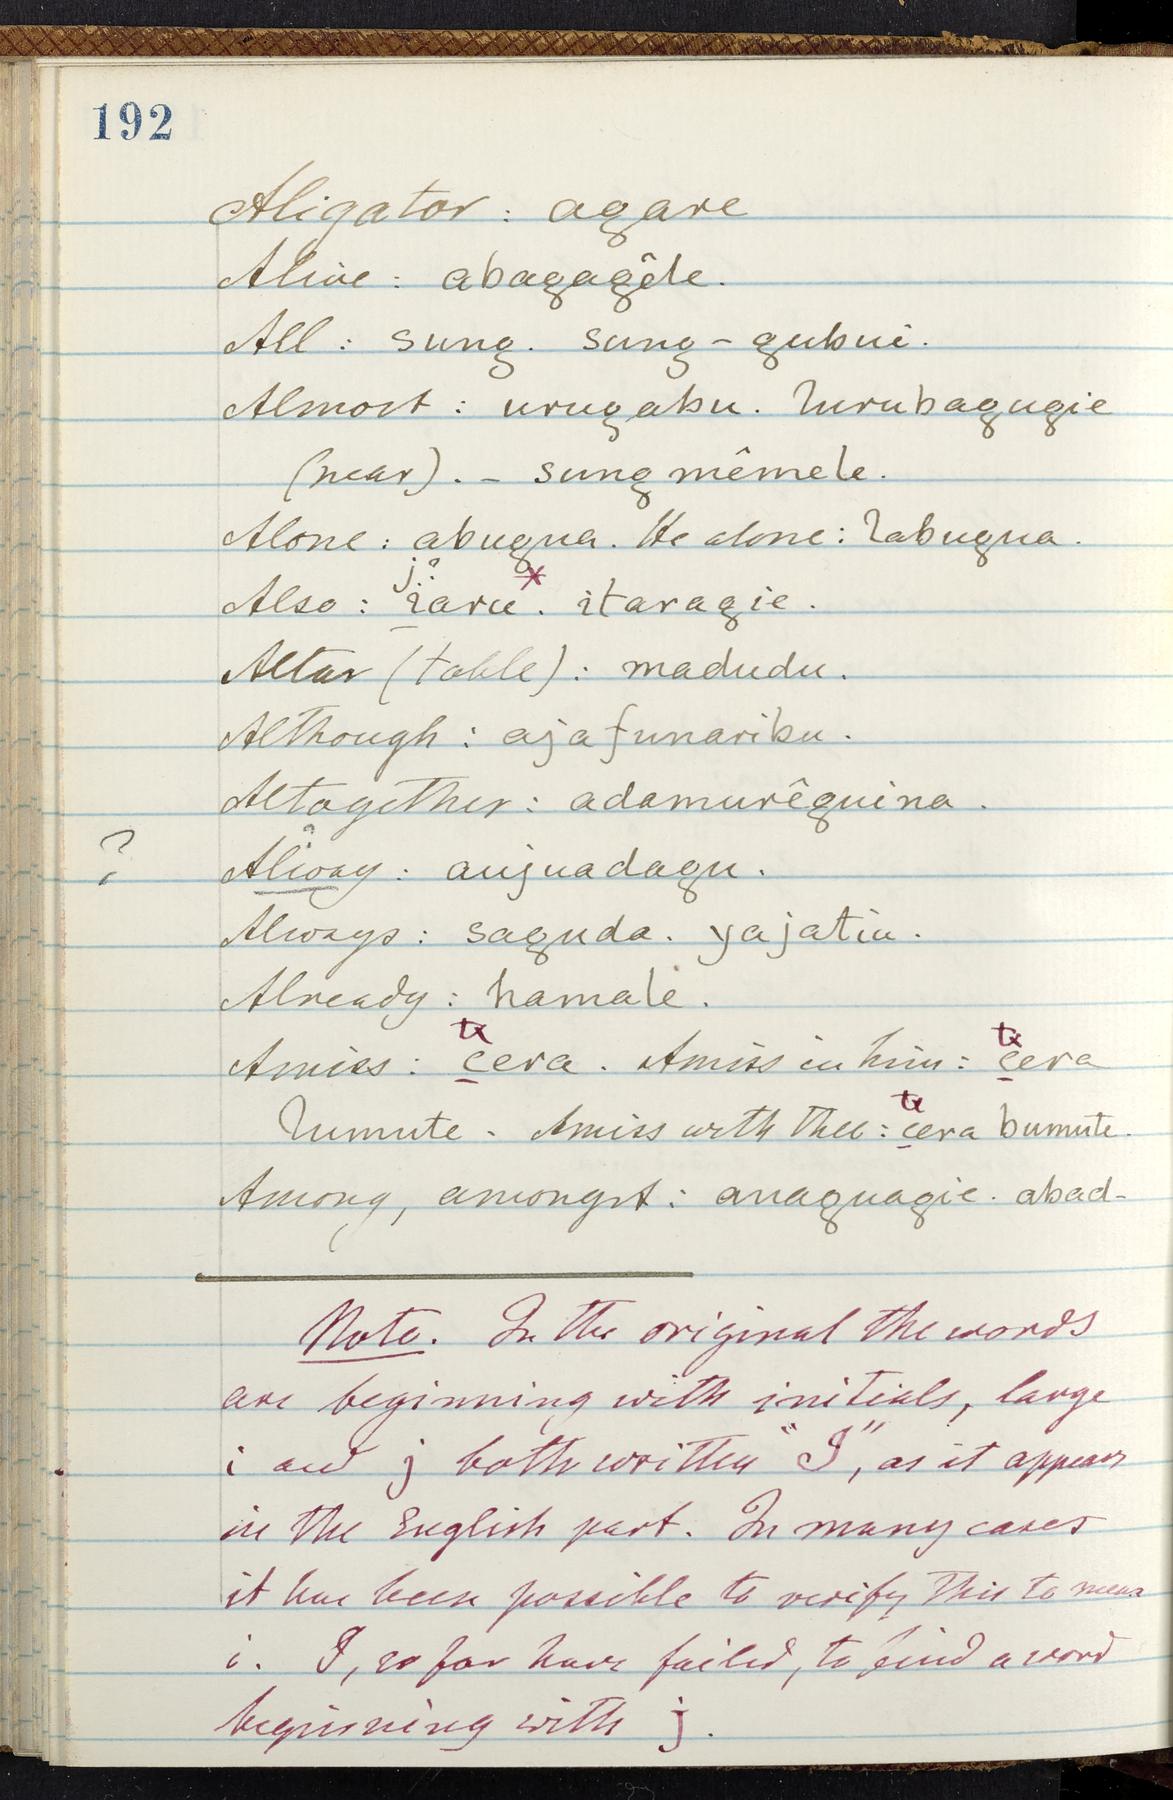 192
Aligator : agare
Alive : abagagêle.
All : sung. sung - gubui.
Almost : urugabu. lurubagugie
(near). - sung mêmele.
Alone : abugua. He alone : labugua.
j ?
Also : iaru *. itaragie.
Altar (table) : madudu.
Although : ajafunaribu.
Altogether : adamurêguina.
?
? Aliway : aujuadagu.
Always : saguda. yajatiu.
Already : hamale.
tx tx
Amiss : cera. Amiss in him : cera
tx
lumute - Amiss with thee : cera bumute.
Among, amongst : anaguagie. abad-
Note. In the original the words
are beginning with initials, large
i and j both written "I", as it appears
in the English part. In many cases
it has been possible to verify this to mean
i. I, so far have failed, to find a word
beginning with j.